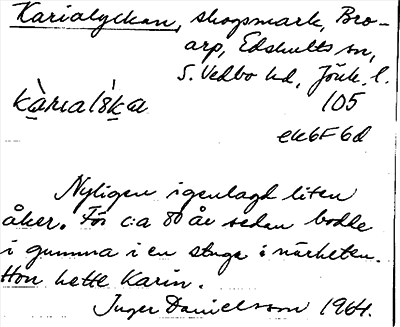 Karialyckan, skogsmark, Bro-
arp, Edshults sn,
S. Vedbo hd, Jönk. l.
kàrialýka 105
ek6F6d
Nyligen igenlagd liten
åker. För c:a 80 år sedan bodde
i gumma i en stuga i närheten.
Hon hette Karin.
Inger Danielsson 1964.